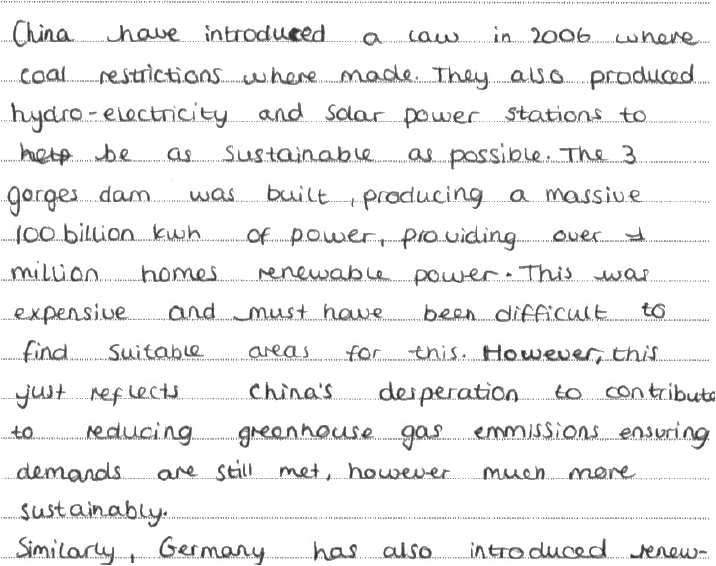 China have introduced a law in 2006 where
coal restrictions where made. They also produced
hydro-electricity and solar power stations to
help be as sustainable as possible. The 3
gorges dam was built, producing a massive
100 billion kwh of power, providing over 1
million homes renewable power. This was
expensive and must have been difficult to
find suitable areas for this. However, this
just reflects China's desperation to contribute
to reducing greenhouse gas emmissions ensuring
demands are still met, however much more
sustainably.
Similarly, Germany has also introduced renew-